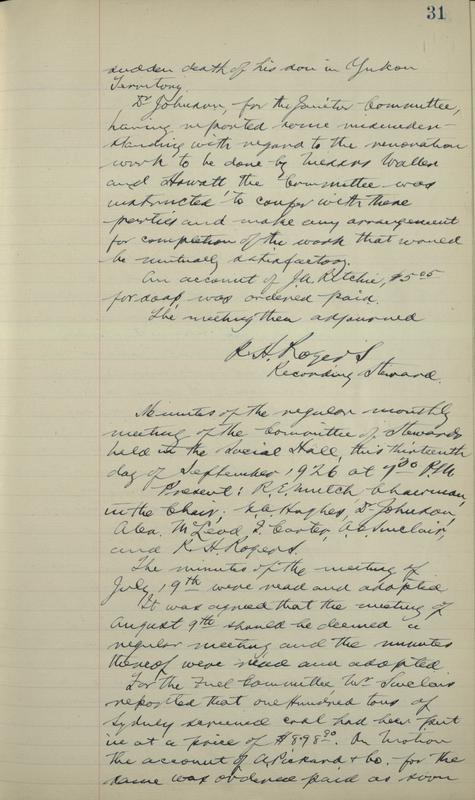 31
sudden death of his son in Yukon
Territory.
Dr Johnson, for the Janitor Committee,
having reported some misunder-
standing with regard to the renovation
work to be done by Messrs Waller
and Howatt, the Committee was
instructed to confer with these
parties and make any arrangement
for completion of the work that would
be mutually satisfactory.
An account of J.A. Ritchie, $5.05
for soap, was ordered paid.
The meeting then adjourned
R. H. Rogers
Recording Steward.
Minutes of the regular monthly
meeting of the Committee of Stewards
held in the Social Hall, this thirteenth
day of September 1926 at P.M
Present: R.E. Mutch Chairman,
in the Chair; Hughes, Dr Johnson,
Alex. McLeod, J. Carter, A.L. Sinclair,
and R. H. Rogers.
The minutes of the meeting of
July 19th were read and adopted
It was agreed that the meeting of
August 9th should be deemed a
regular meeting and the minutes
thereof were read and adopted
For the Fuel Committee, Mr. Sinclair
reported that one Hundred tons of
Sydney screened coal had been put
in at a price of $898. On motion
the account of A. Pickard & Co. for the
same was ordered paid as soon